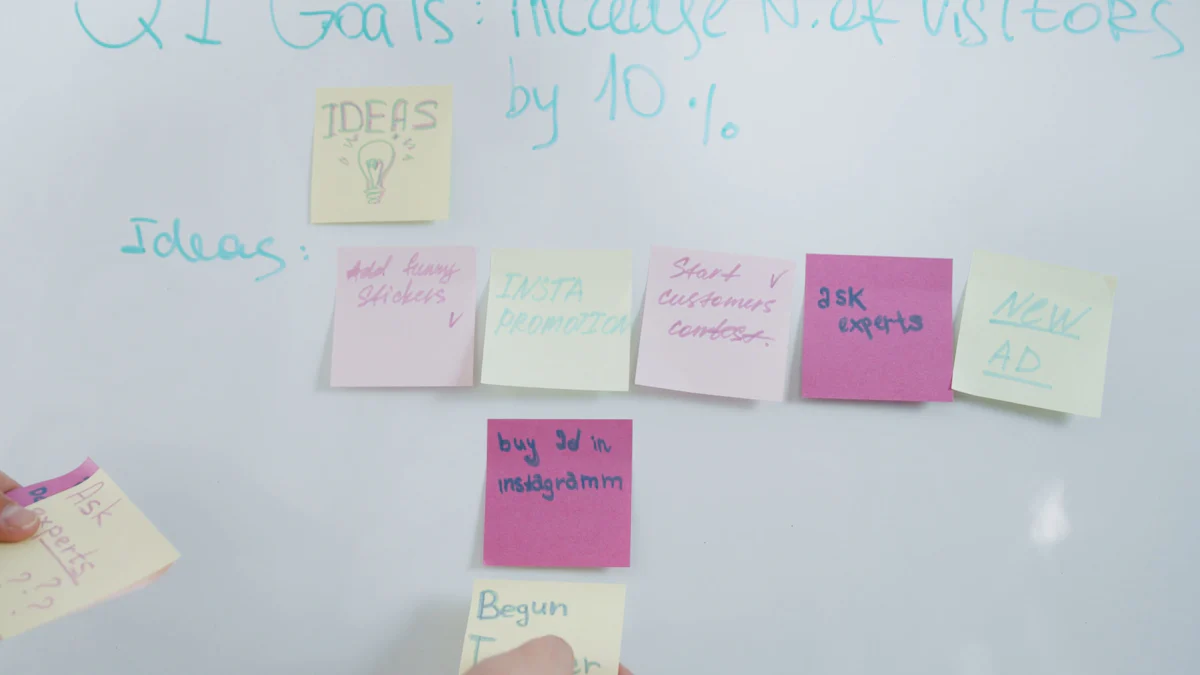 Q1 Goals: increase N. of visitors
by 10 %
IDEAS
Ideas:
Add funny
stickers
INSTA
PROMOTION
Start
customers
contest.
ask
experts
NEW
AD
buy ad in
instagramm
Ask
experts
???
??
Begun